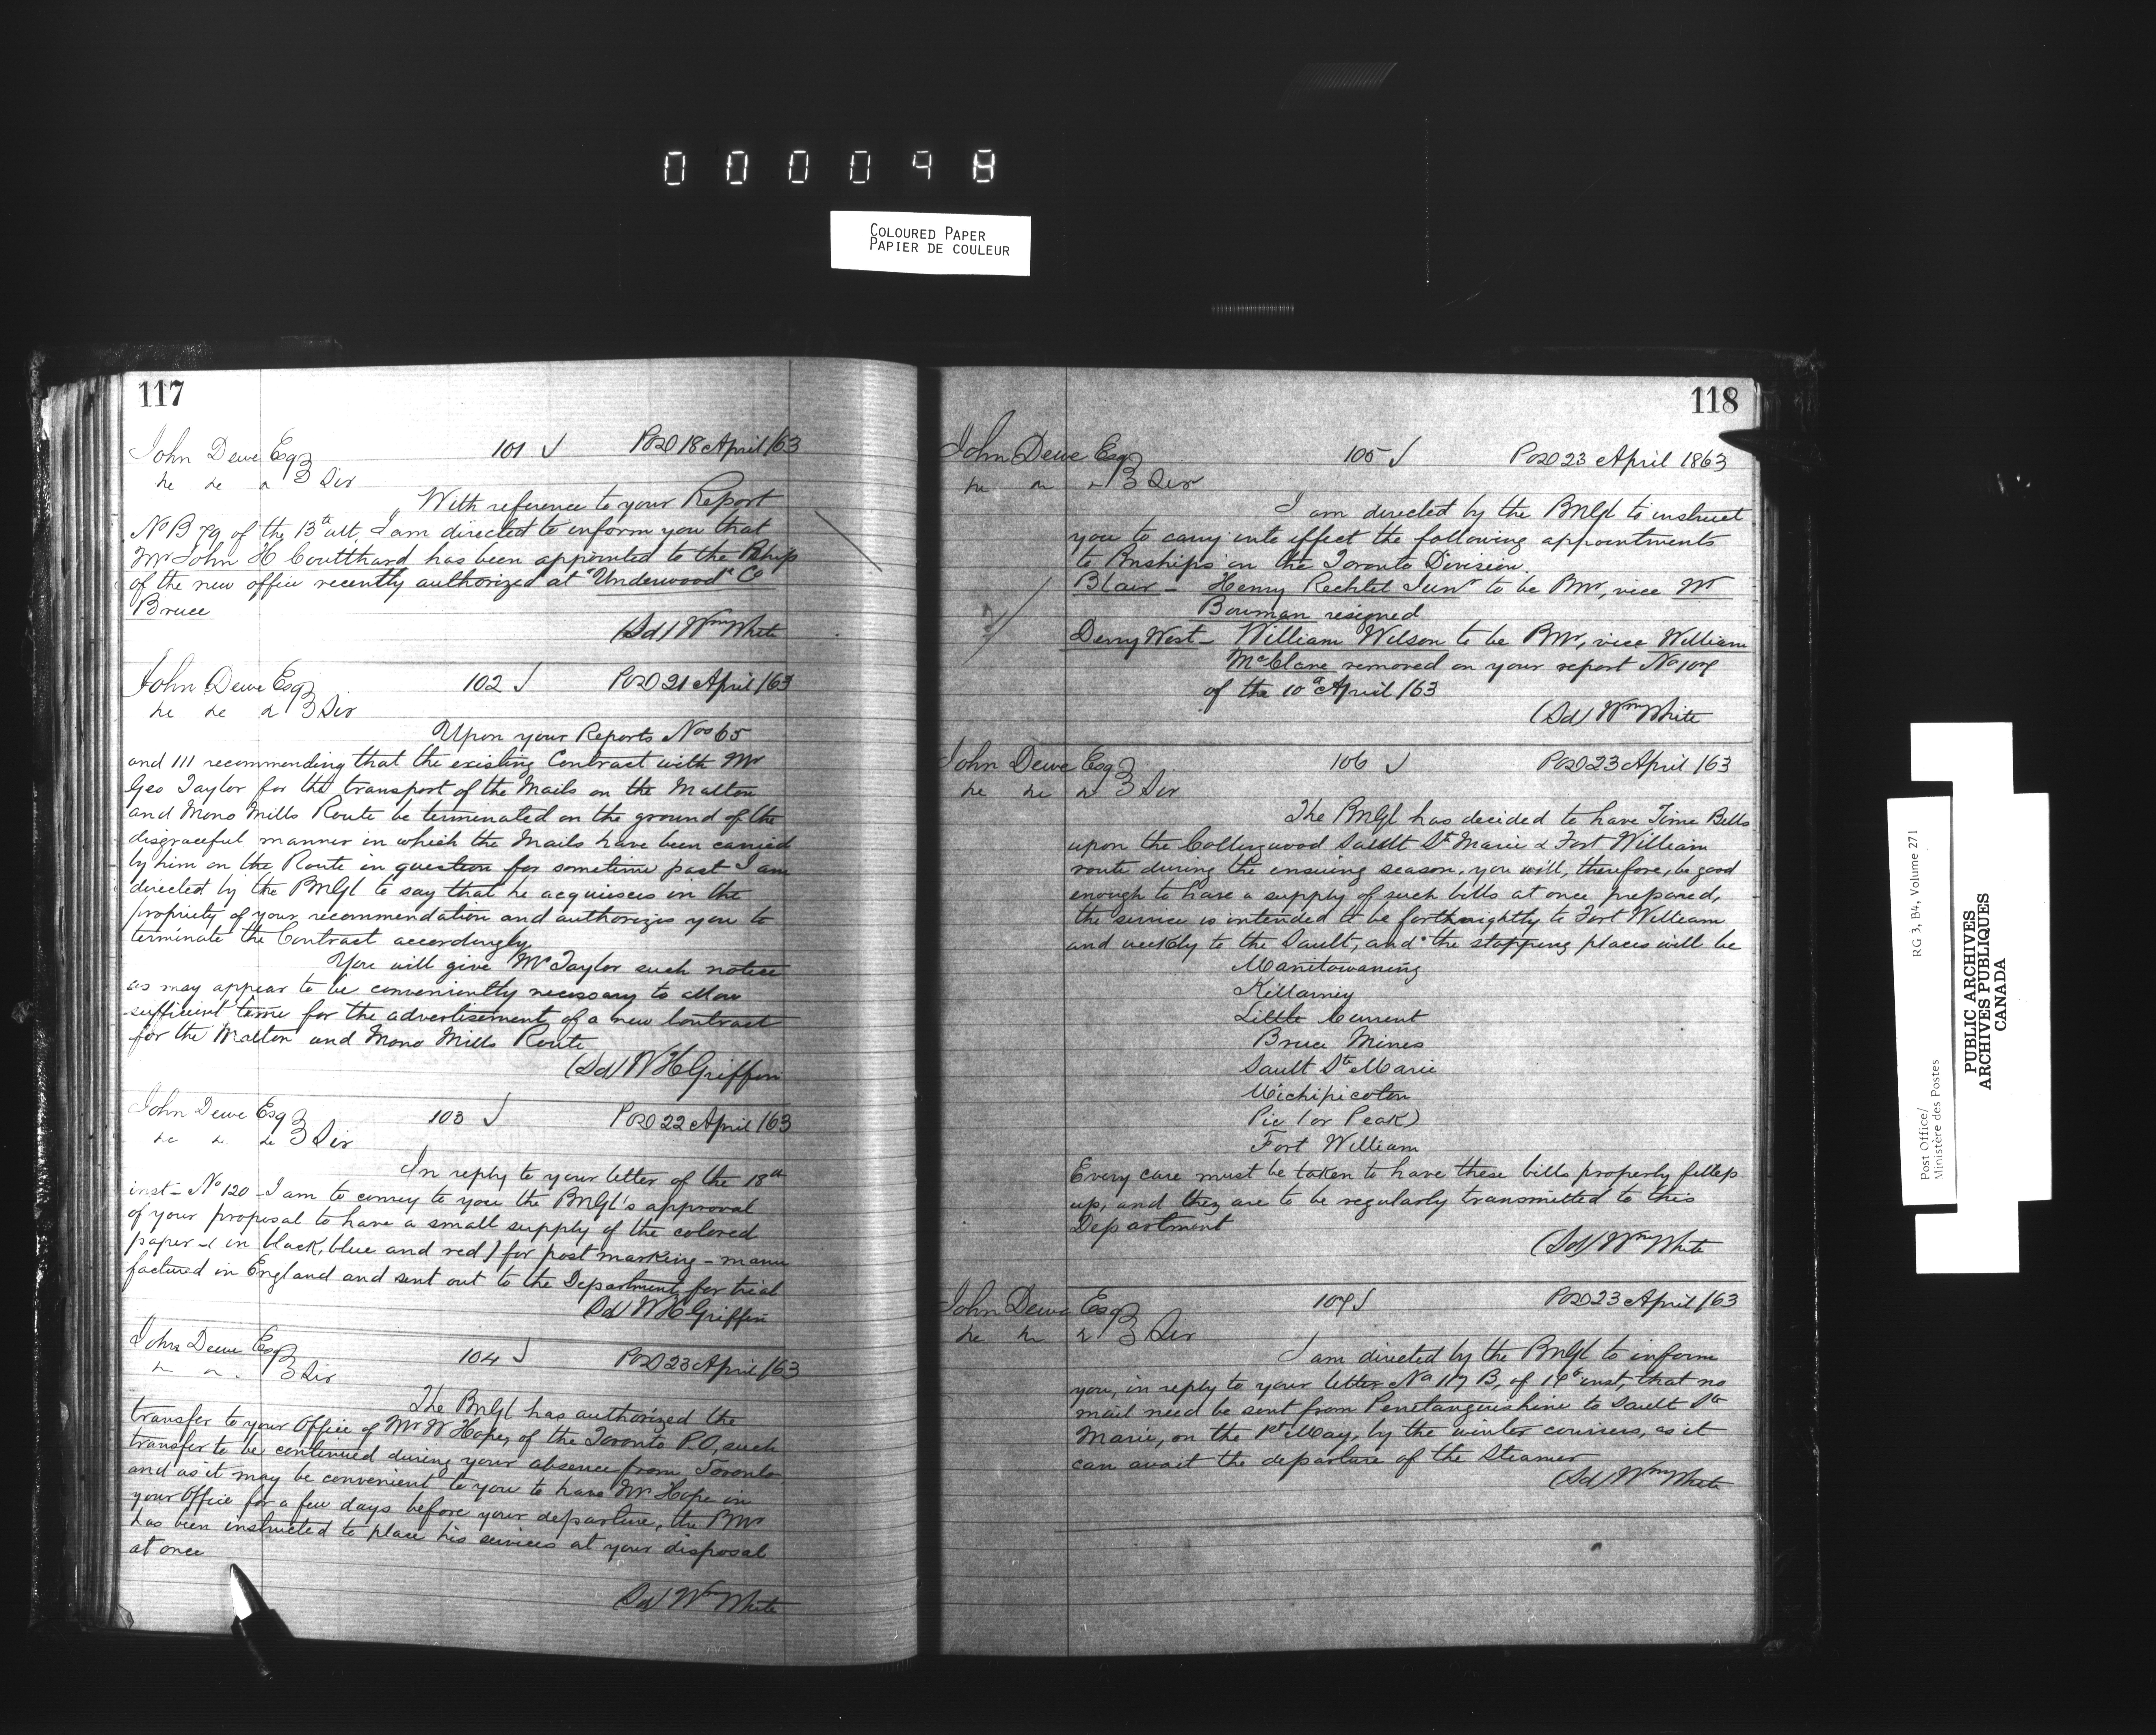 000098
COLOURED PAPER
PAPIER DE COULEUR
117
John Dewe Esq 101 POD 18 April /63
3 Div
With reference to your Report
No B 79 of the 13th ult. I am directed to inform you that
Mr John H Coutthard has been appointed to the PMship
of the new office recently authorized at "Underwood" Co
Bruce
(Sd) Wm White
John Dewe Esq 102 POD 21 April /63
3 Div
Upon your Reports Nos 65
and 111 recommending that the existing Contract with Mr
Geo Taylor for the transport of the Mails on the Malton
and Mono Mills Route be terminated on the ground of the
disgraceful manner in which the Mails have been carried
by him on the Route in question for sometime past I am
directed by the PMGl to say that he acquiesces in the
propriety of your recommendation and authorizes you to
terminate the Contract accordingly
You will give Mr Taylor such notice
as may appear to be conveniently necessary to allow
sufficient time for the advertisement of a new Contract
for the Malton and Mono Mills Route
(Sd) W H Griffin
John Dewe Esq 103 POD 22 April /63
3 Div
In reply to your letter of the 18th
inst - No 120 - I am to convey to you the PMGl's approval
of your proposal to have a small supply of the colored
paper - (in black, blue and red) for post marking - manu
factured in England and sent out to the Department for trial
Sd W H Griffin
John Dewe Esq 104 POD 23 April /63
3 Div
The PMGl has authorized the
transfer to your Office of Mr W Hope, of the Toronto P.O, such
transfer to be continued during your absence from Toronto
and as it may be convenient to you to have Mr Hope in
your Office for a few days before your departure, the PMr
has been instructed to place his services at your disposal
at once
(Sd) Wm White
118
John Dewe Esq 105 POD 23 April 1863
3 Div
I am directed by the PMGl to instruct
you to carry into effect the following appointments
to PMships in the Toronto Division.
Blair - Henry Rechtel Junr to be PMr, vice Wm
Bowman resigned
Derry West - William Wilson to be PMr, vice William
McClane removed on your report No 107
of the 10th April /63
(Sd) Wm White
John Dewe Esq 106 POD 23 April /63
3 Div
The PMGl has decided to have Time Bills
upon the Collingwood Sault St Marie & Fort William
route during the ensuing season, you will, therefore, be good
enough to have a supply of such bills at once prepared,
the service is intended to be forthnightly to Fort William
and weekly to the Sault, and the stopping places will be
Manitowaning
Killarney
Little Current
Bruce Mines
Sault Ste Marie
Michipicoton
Pic (or Peak)
Fort William
Every care must be taken to have these bills properly filled
up, and they are to be regularly transmitted to this
Department
(Sd) Wm White
John Dewe Esq 107 POD 23 April /63
3 Div
I am directed by the PMGl to inform
you, in reply to your letter No 117 B, of inst, that no
mail need be sent from Penetanguishine to Sault Ste
Marie, on the 1st May, by the winter couriers, as it
can await the departure of the Steamer
(Sd) Wm White
Post Office/
Ministère des Postes
RG 3, B4, Volume 271
PUBLIC ARCHIVES
ARCHIVES PUBLIQUES
CANADA